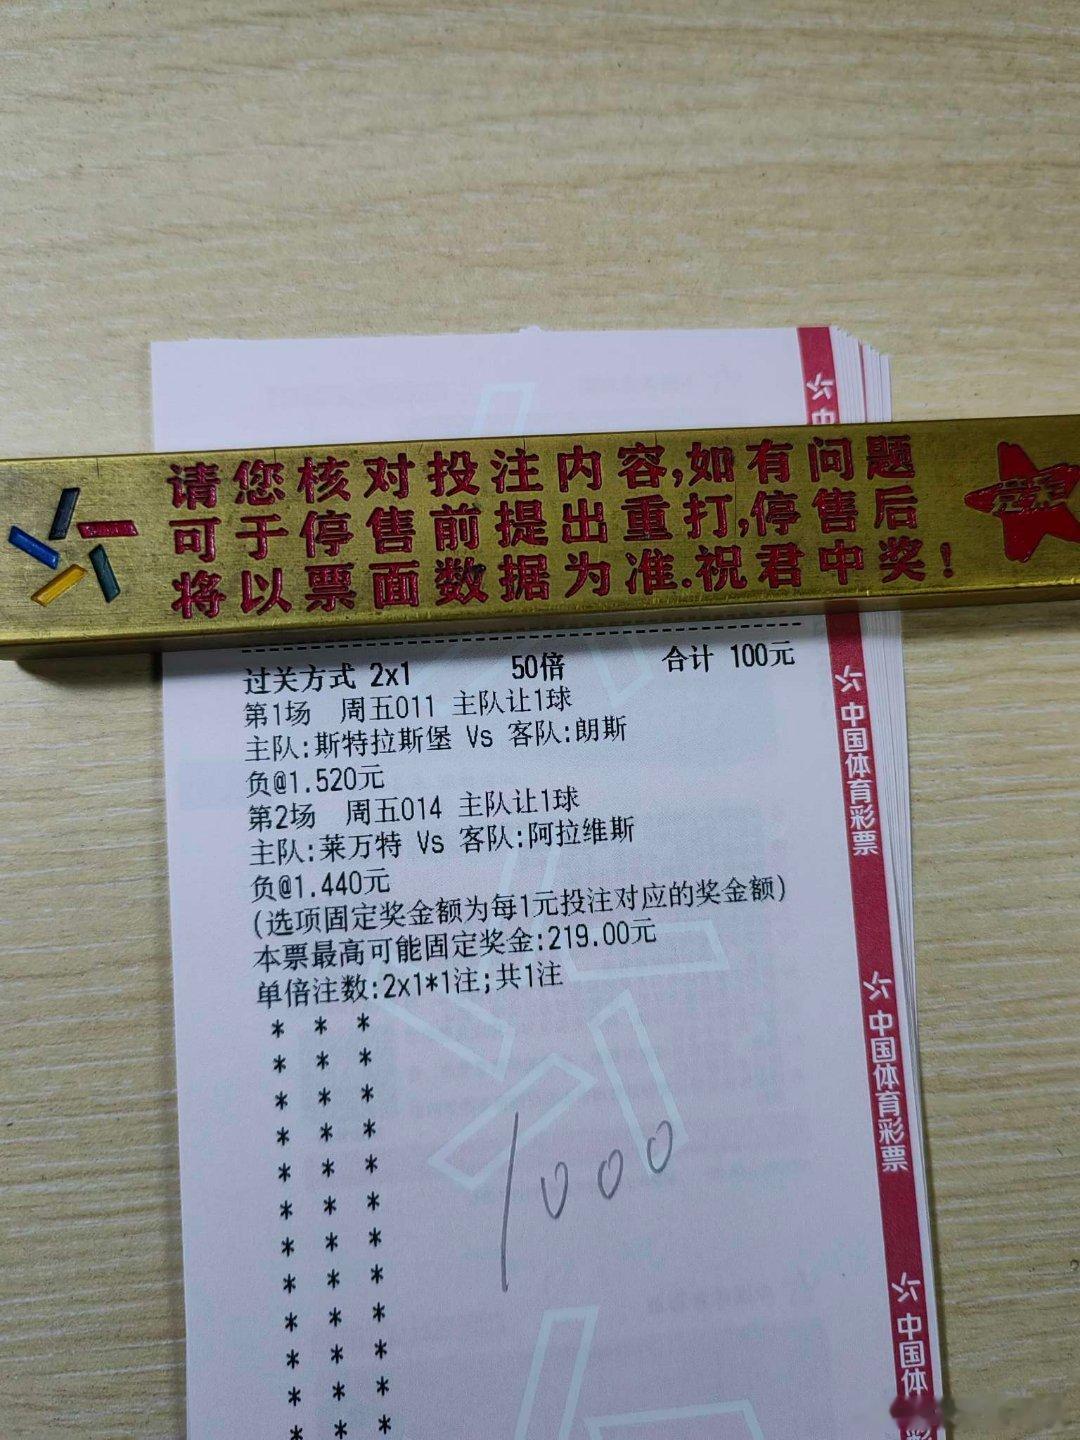 中
请您核对投注内容,如有问题
可于停售前提出重打,停售后
将以票面数据为准.祝君中奖!
过关方式 2x1 50倍 合计 100元
第1场 周五011 主队让1球
主队:斯特拉斯堡 Vs 客队:朗斯
负@1.520元
第2场 周五014 主队让1球
主队:莱万特 Vs 客队:阿拉维斯
负@1.440元
(选项固定奖金额为每1元投注对应的奖金额)
本票最高可能固定奖金:219.00元
单倍注数:2x1*1注;共1注
* * *
* * *
* * *
* * *
* * *
* * *
* * *
* * *
* * *
* * *
* * *
* * *
1000
中国体育彩票
中国体育彩票
中国体彩